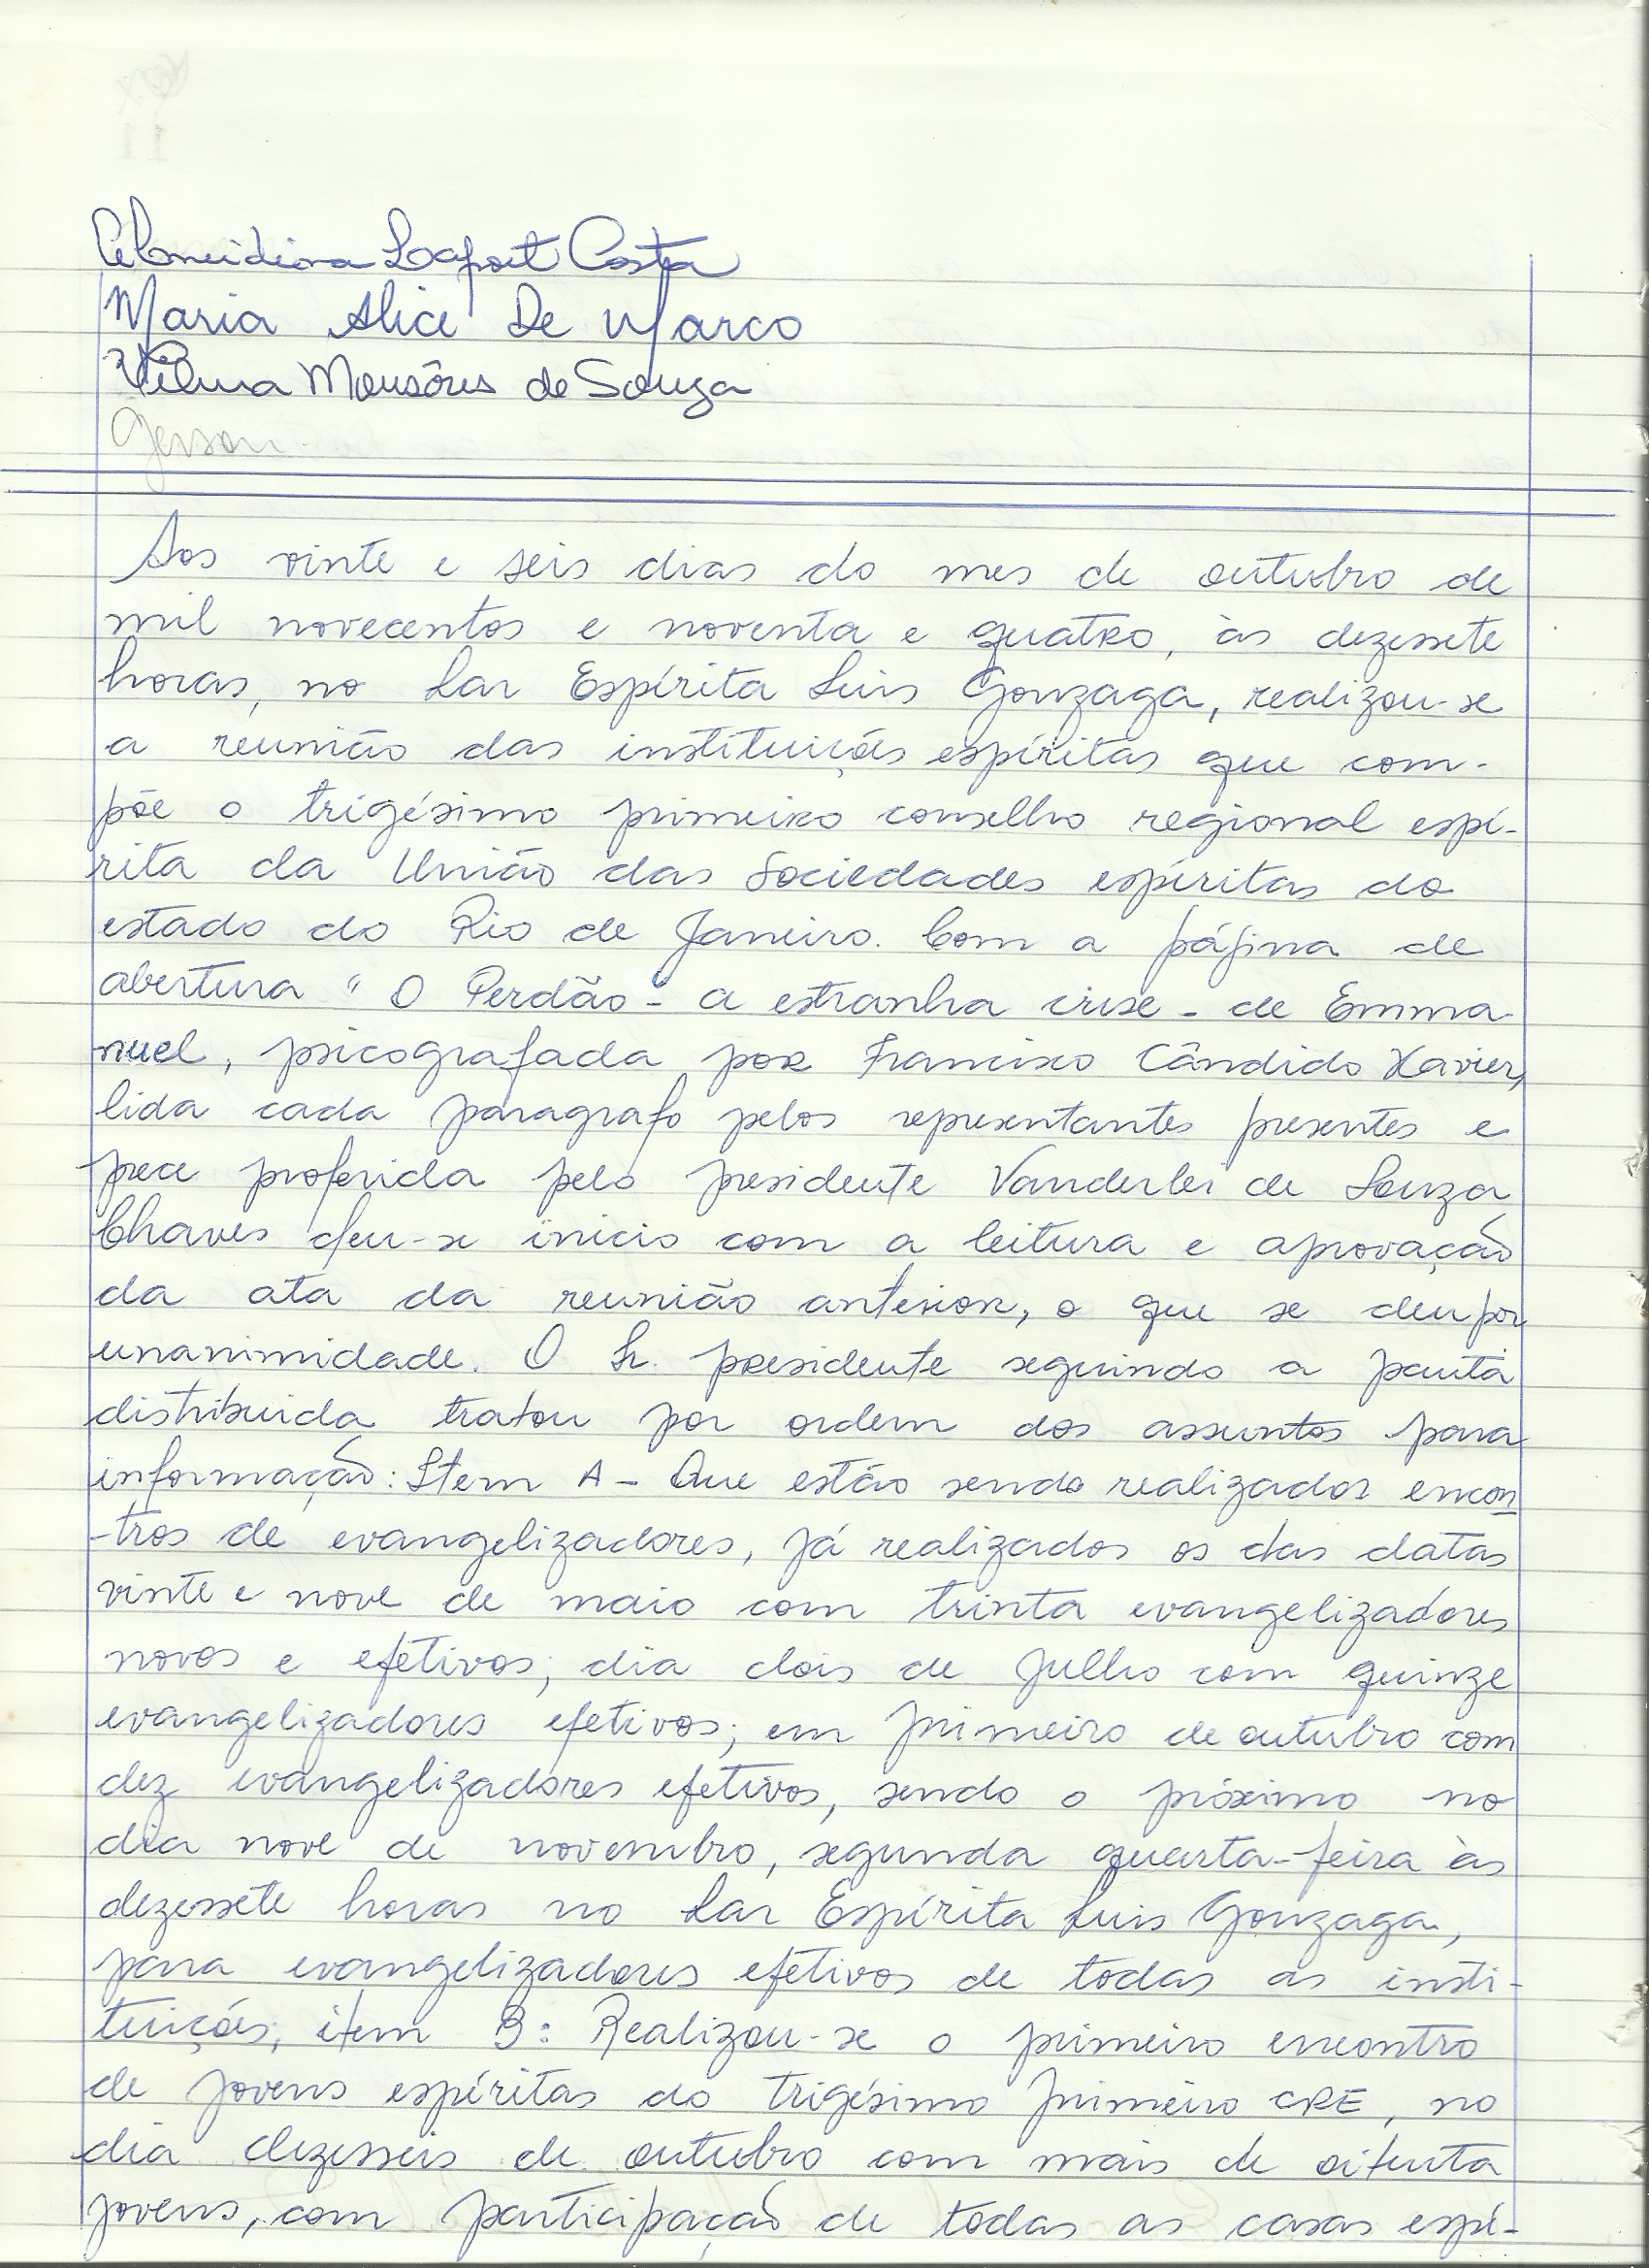 Almeidiora Laport Costa
Maria Alice De Marco
Vilma Monsôres de Souza
Gerson
Aos vinte e seis dias do mes de outubro de
mil novecentos e noventa e quatro, às dezessete
horas, no Lar Espírita Luis Gonzaga, realizou-se
a reunião das instituições espíritas que com-
põe o trigésimo primeiro conselho regional espí-
rita da União das Sociedades espíritas do
estado do Rio de Janeiro. Com a página de
abertura " O Perdão - a estranha crise - de Emma-
nuel, psicografada por Francisco Cândido Xavier,
lida cada paragrafo pelos representantes presentes e
prece proferida pelo presidente Vanderlei de Souza
Chaves deu-se inicio com a leitura e aprovação
da ata da reunião anterior, o que se deu por
unanimidade. O Sr. presidente seguindo a pauta
distribuida tratou por ordem dos assuntos para
informação: Item A - Que estão sendo realizados encon
-tros de evangelizadores, já realizados os das datas
vinte e nove de maio com trinta evangelizadores
novos e efetivos; dia dois de Julho com quinze
evangelizadores efetivos; em primeiro de outubro com
dez evangelizadores efetivos, sendo o próximo no
dia nove de novembro, segunda quarta-feira às
dezessete horas no Lar Espírita Luis Gonzaga,
para evangelizadores efetivos de todas as insti-
tuições; item B: Realizou-se o primeiro encontro
de jovens espíritas do trigésimo primeiro CRE, no
dia dezesseis de outubro com mais de oitenta
jovens, com participação de todas as casas espí-